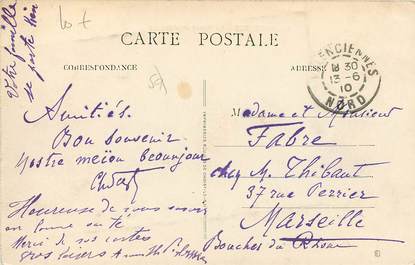 Votre famille
se porte bien
CARTE POSTALE
CORRESPONDANCE
ADRESSE
ENCIENNES
18 30
13-6
10
NORD
59
Amitiés.
Bon souvenir
Heureuse de vous savoir
en bonne santé
Merci de vos cartes
gros baisers
Madame et Monsieur
Fabre
chez M. Thibaut
37 rue Perrier
Marseille
Bouches du Rhône